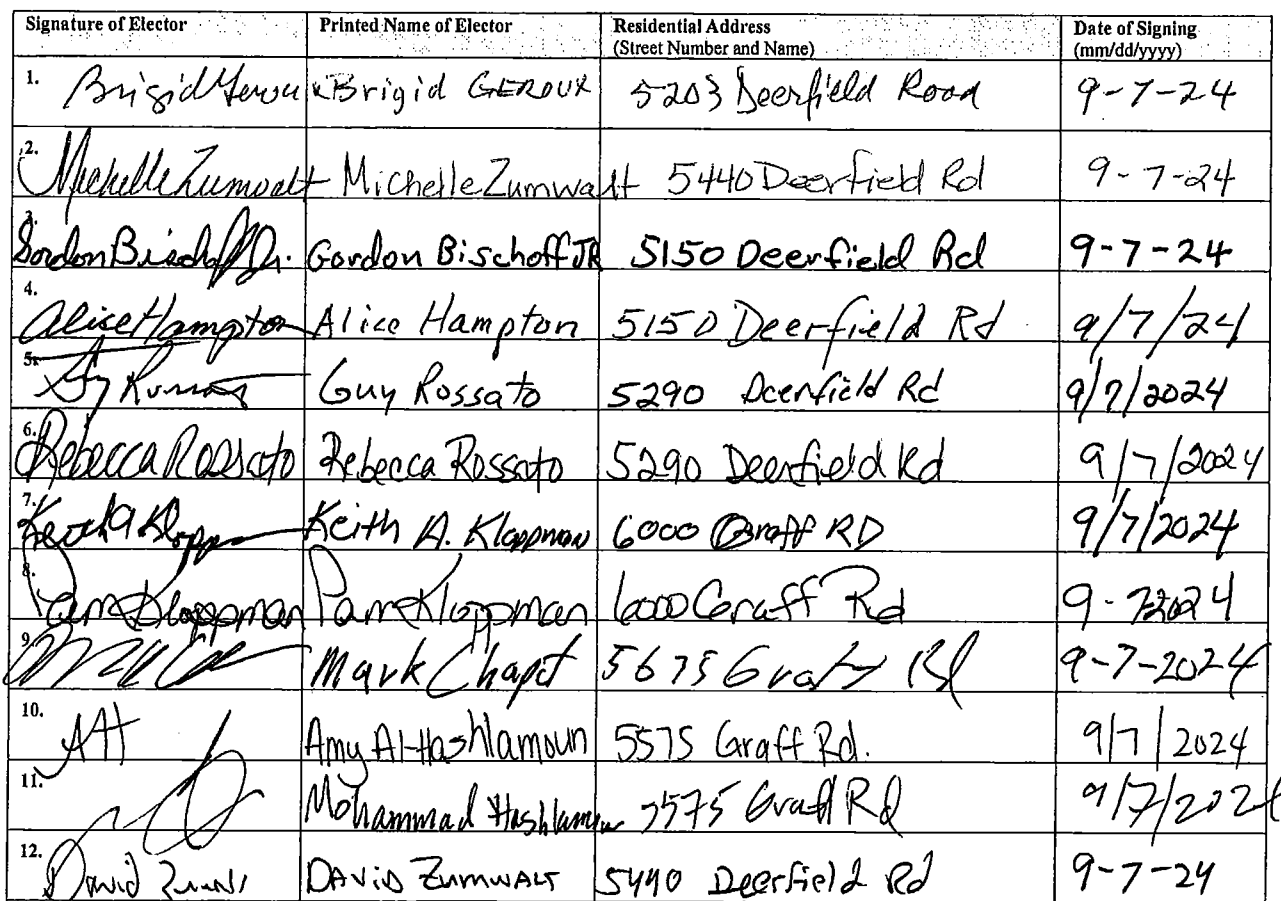 Signature of Elector Printed Name of Elector Residential Address Date of Signing
(Street Number and Name) (mm/dd/yyyy)
1. Brigid Geroux Brigid GEROUX 5203 Deerfield Road 9-7-24
2. Michelle Zumwalt Michelle Zumwalt 5440 Deerfield Rd 9-7-24
3. Gordon Bischoff Jr. Gordon Bischoff JR 5150 Deerfield Rd 9-7-24
4. Alice Hampton Alice Hampton 5150 Deerfield Rd 9/7/24
5. Guy Rossato 5290 Deerfield Rd 9/7/2024
6. Rebecca Rossato Rebecca Rossato 5290 Deerfield Rd 9/7/2024
7. Keith A Keith A. Kloppman 6000 Graff RD 9/7/2024
8. Pam Kloppman Pam Kloppman 6000 Graff Rd 9-7-2024
9. Mark 5675 Rd 9-7-2024
10. AH Amy Al-Hashlamoun 5575 Graff Rd. 9/7/2024
11. Mohammad 5575 Graff Rd 9/7/2024
12. David DAVID ZUMWALT 5440 Deerfield Rd 9-7-24